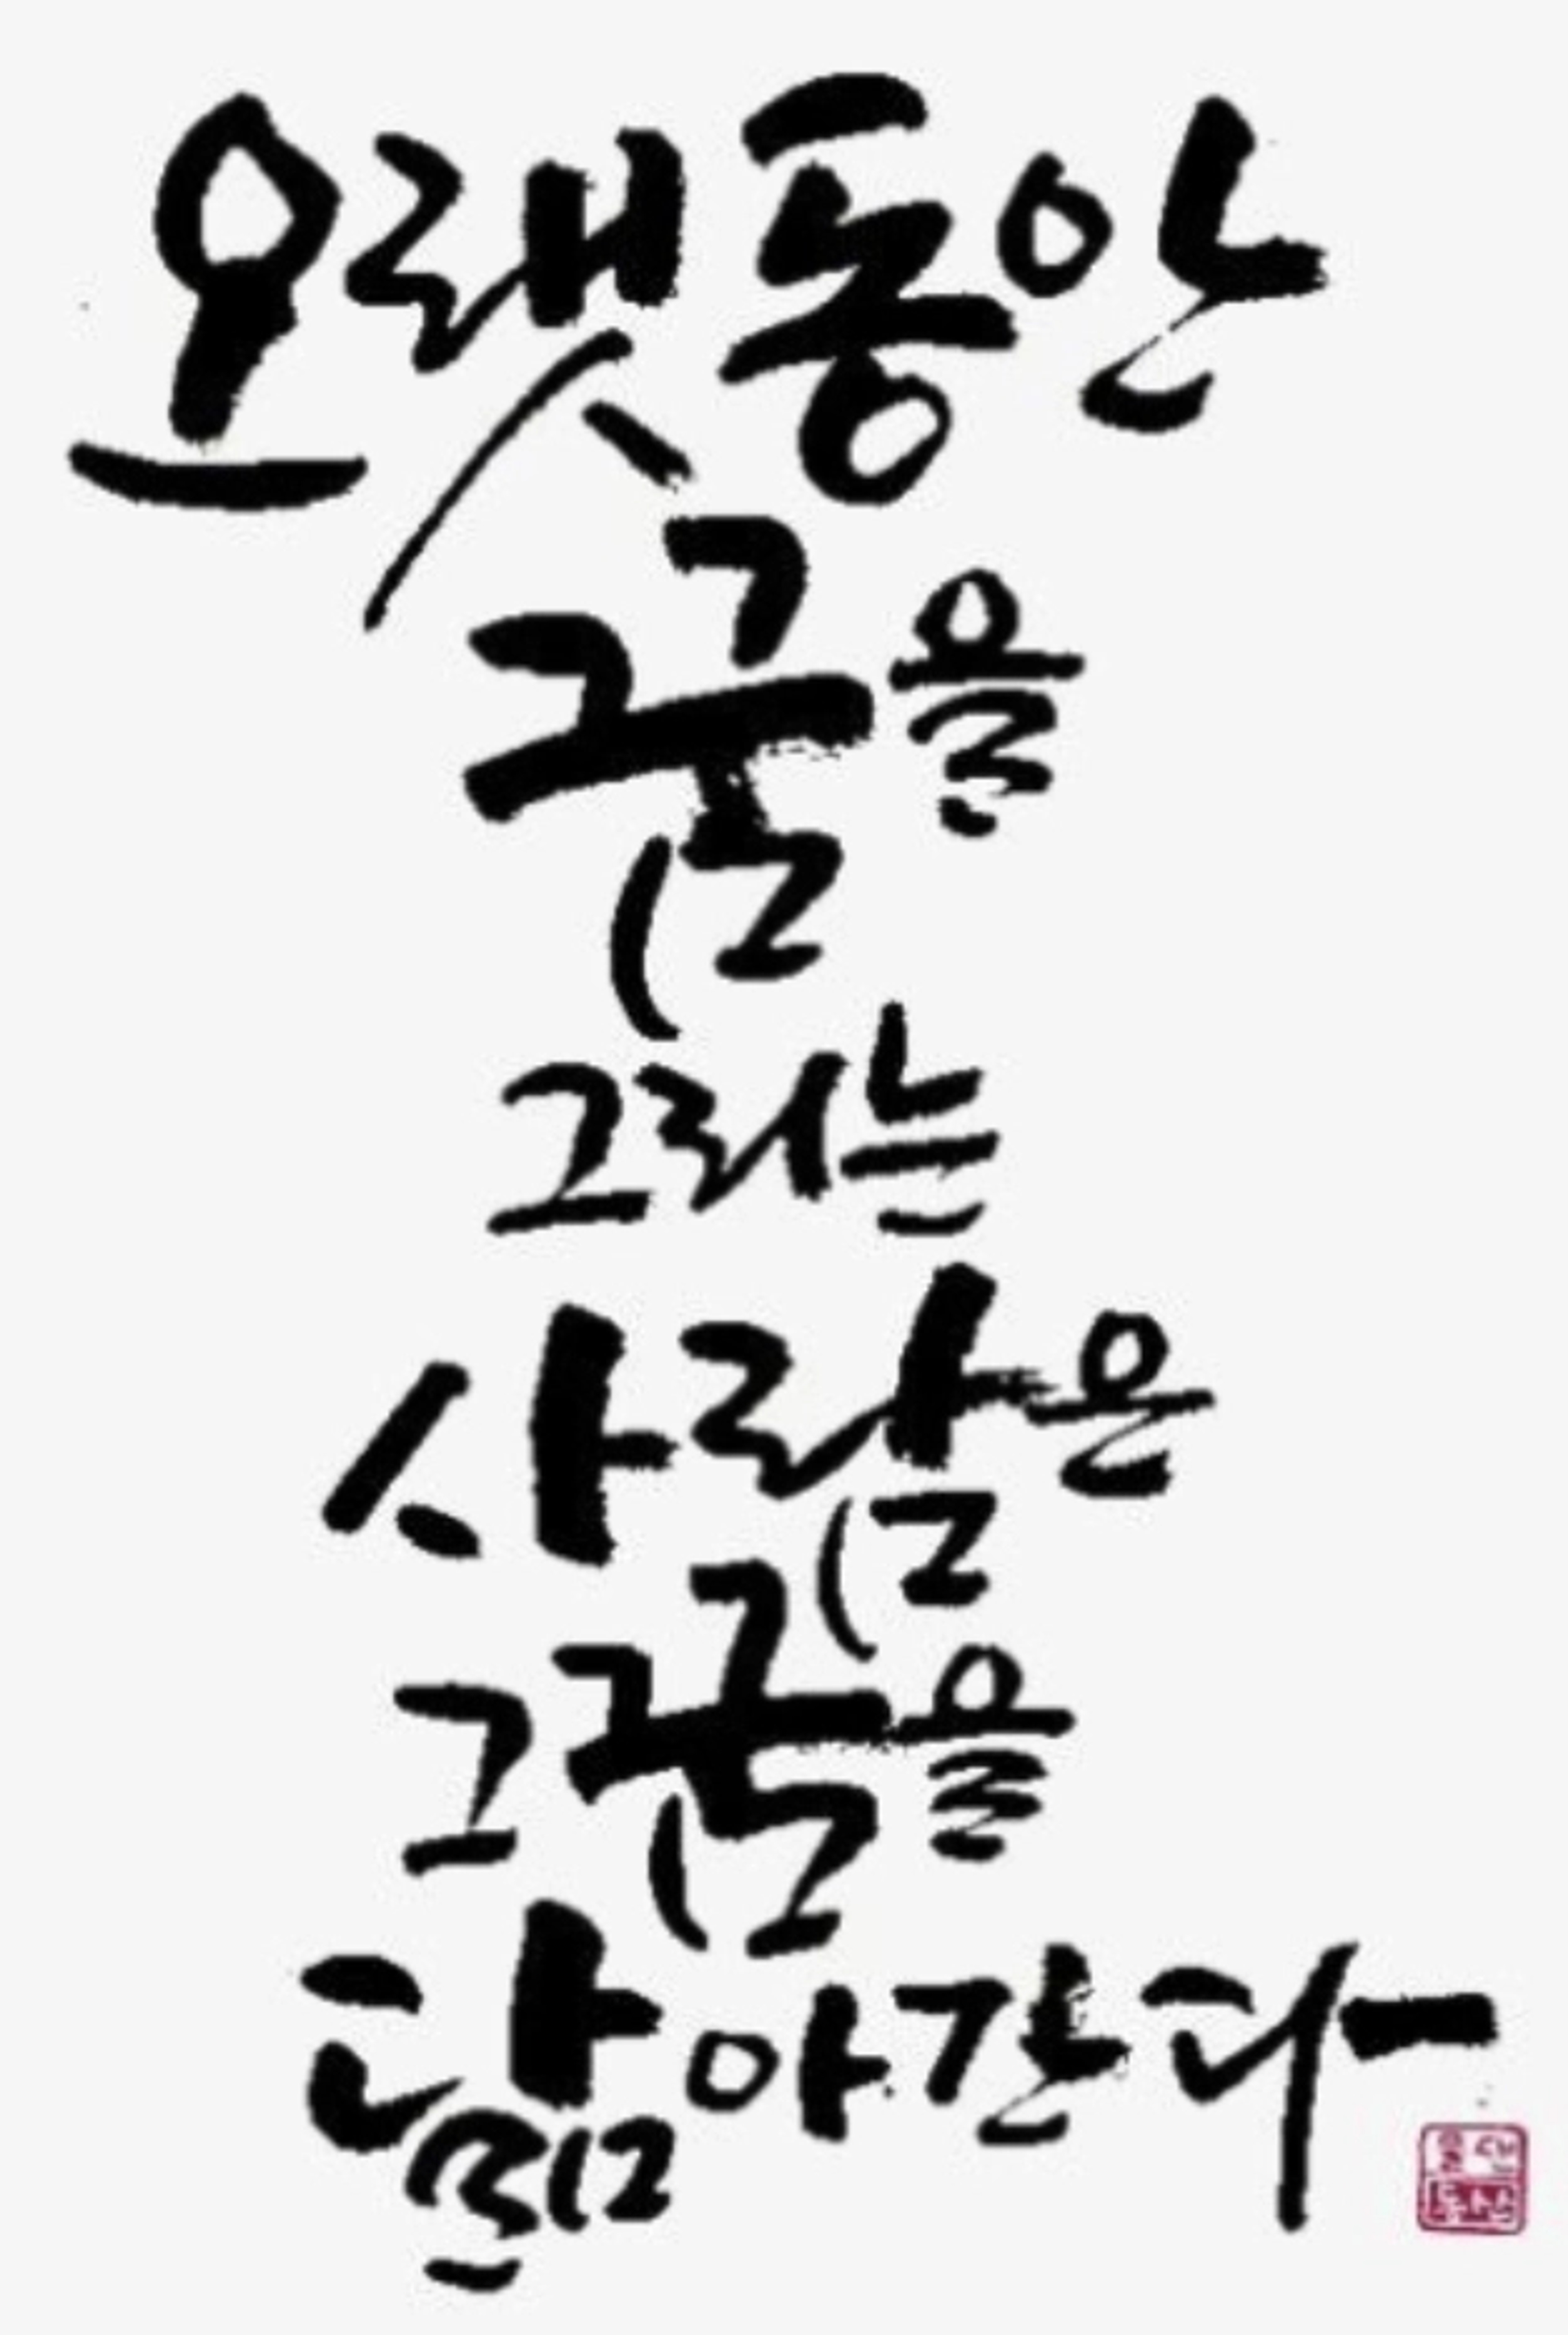 오랫동안
꿈을
그리는
사람은
그 꿈을
닮아간다